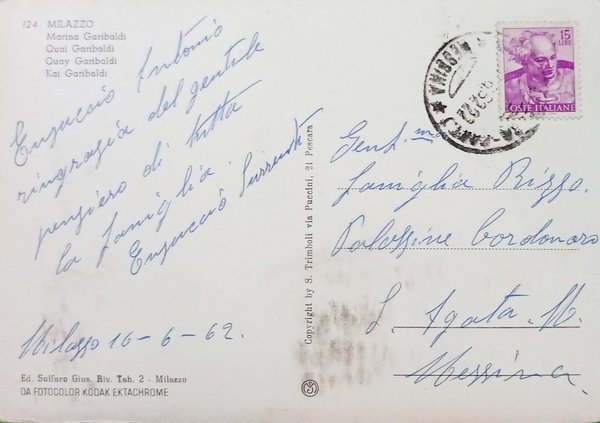 124 MILAZZO
Marina Garibaldi
Quai Garibaldi
Quay Garibaldi
Kai Garibaldi
Antonio
ringrazia del gentile
pensiero di tutta
la famiglia.
Milazzo 16-6-62.
Ed. Sulfaro Gius. Riv. Tab. 2 - Milazzo
DA FOTOCOLOR KODAK EKTACHROME
Copyright by S. Trimboli via Puccini, 21 Pescara
15
LIRE
POSTE ITALIANE
MESSINA
Gent.me
famiglia Rizzo.
Palazzine Cordonaro
S. Agata M.
Messina